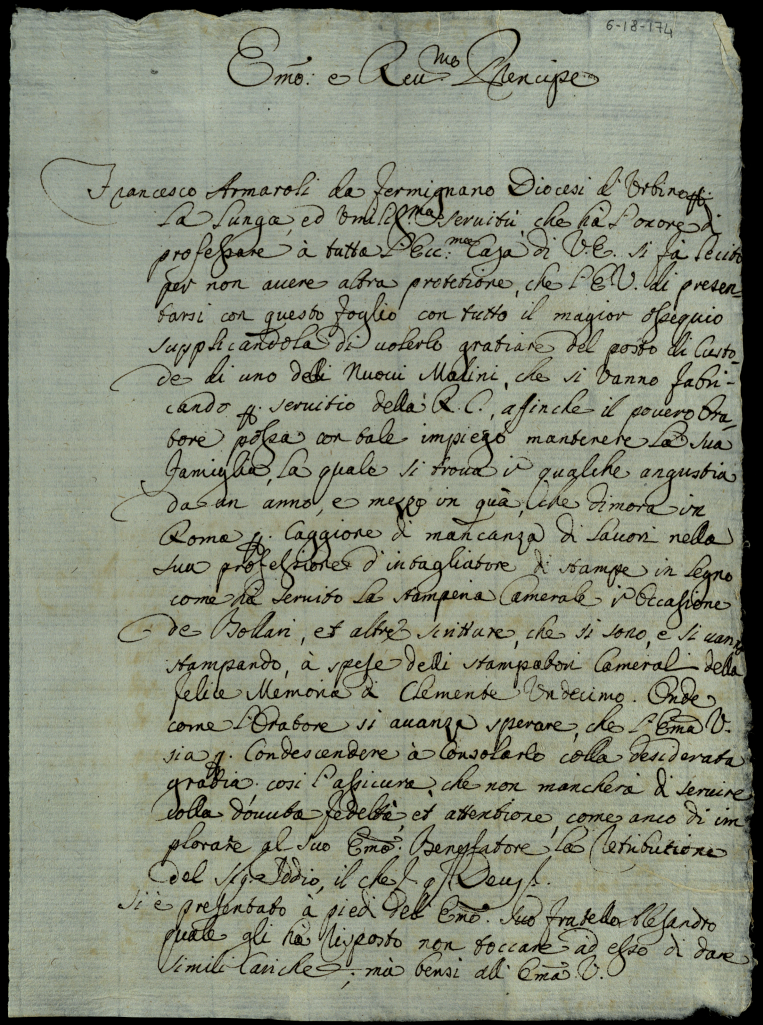 6-18-174
Emo: e Reumo Prencipe
Francesco Armaroli da Fermignano Diocesi d'Urbino p.
la lunga, ed umilissma servitù, che hà l'onore di
professare à tutta l'Eccma Casa di V.E. si fà lecito
per non avere altra protetione, che l'E.V. di presen-
tarsi con questo foglio con tutto il magior ossequio
supplicandola di volerlo gratiare del posto di Custo-
de di uno deli Nuovi Molini, che si vanno fabri-
cando p. servitio della R.C., affinche il povero Ora-
tore possa con tale impiego mantenere la sua
famiglia, la quale si trova in qualche angustia
da un anno, e mezzo in quà, che dimora in
Roma p. Caggione di mancanza di lavori nella
sua professione d'intagliatore di stampe in legno
come hà servito la stamperia Camerale in occasione
de Bollari, et altre scritture, che si sono, e si vano
stampando, à spese delli stampatori Camerali della
felice Memoria di Clemente Undecimo. Onde
come l'Oratore si avanza sperare, che l'Ema V.
sia p. Condescendere à Consolarlo colla desiderata
gratia. cosi l'assicura, che non mancherà di servire
colla dovuta fedeltà, et attentione, come anco di im
plorare al suo Emo. Benefattore la Retributione
del Sig. Iddio, il che
si è presentato à piedi dell'Emo. suo fratello Alesandro
quale gli hà risposto non toccare ad esso di dare
simili Cariche, mà bensi all'Ema V.